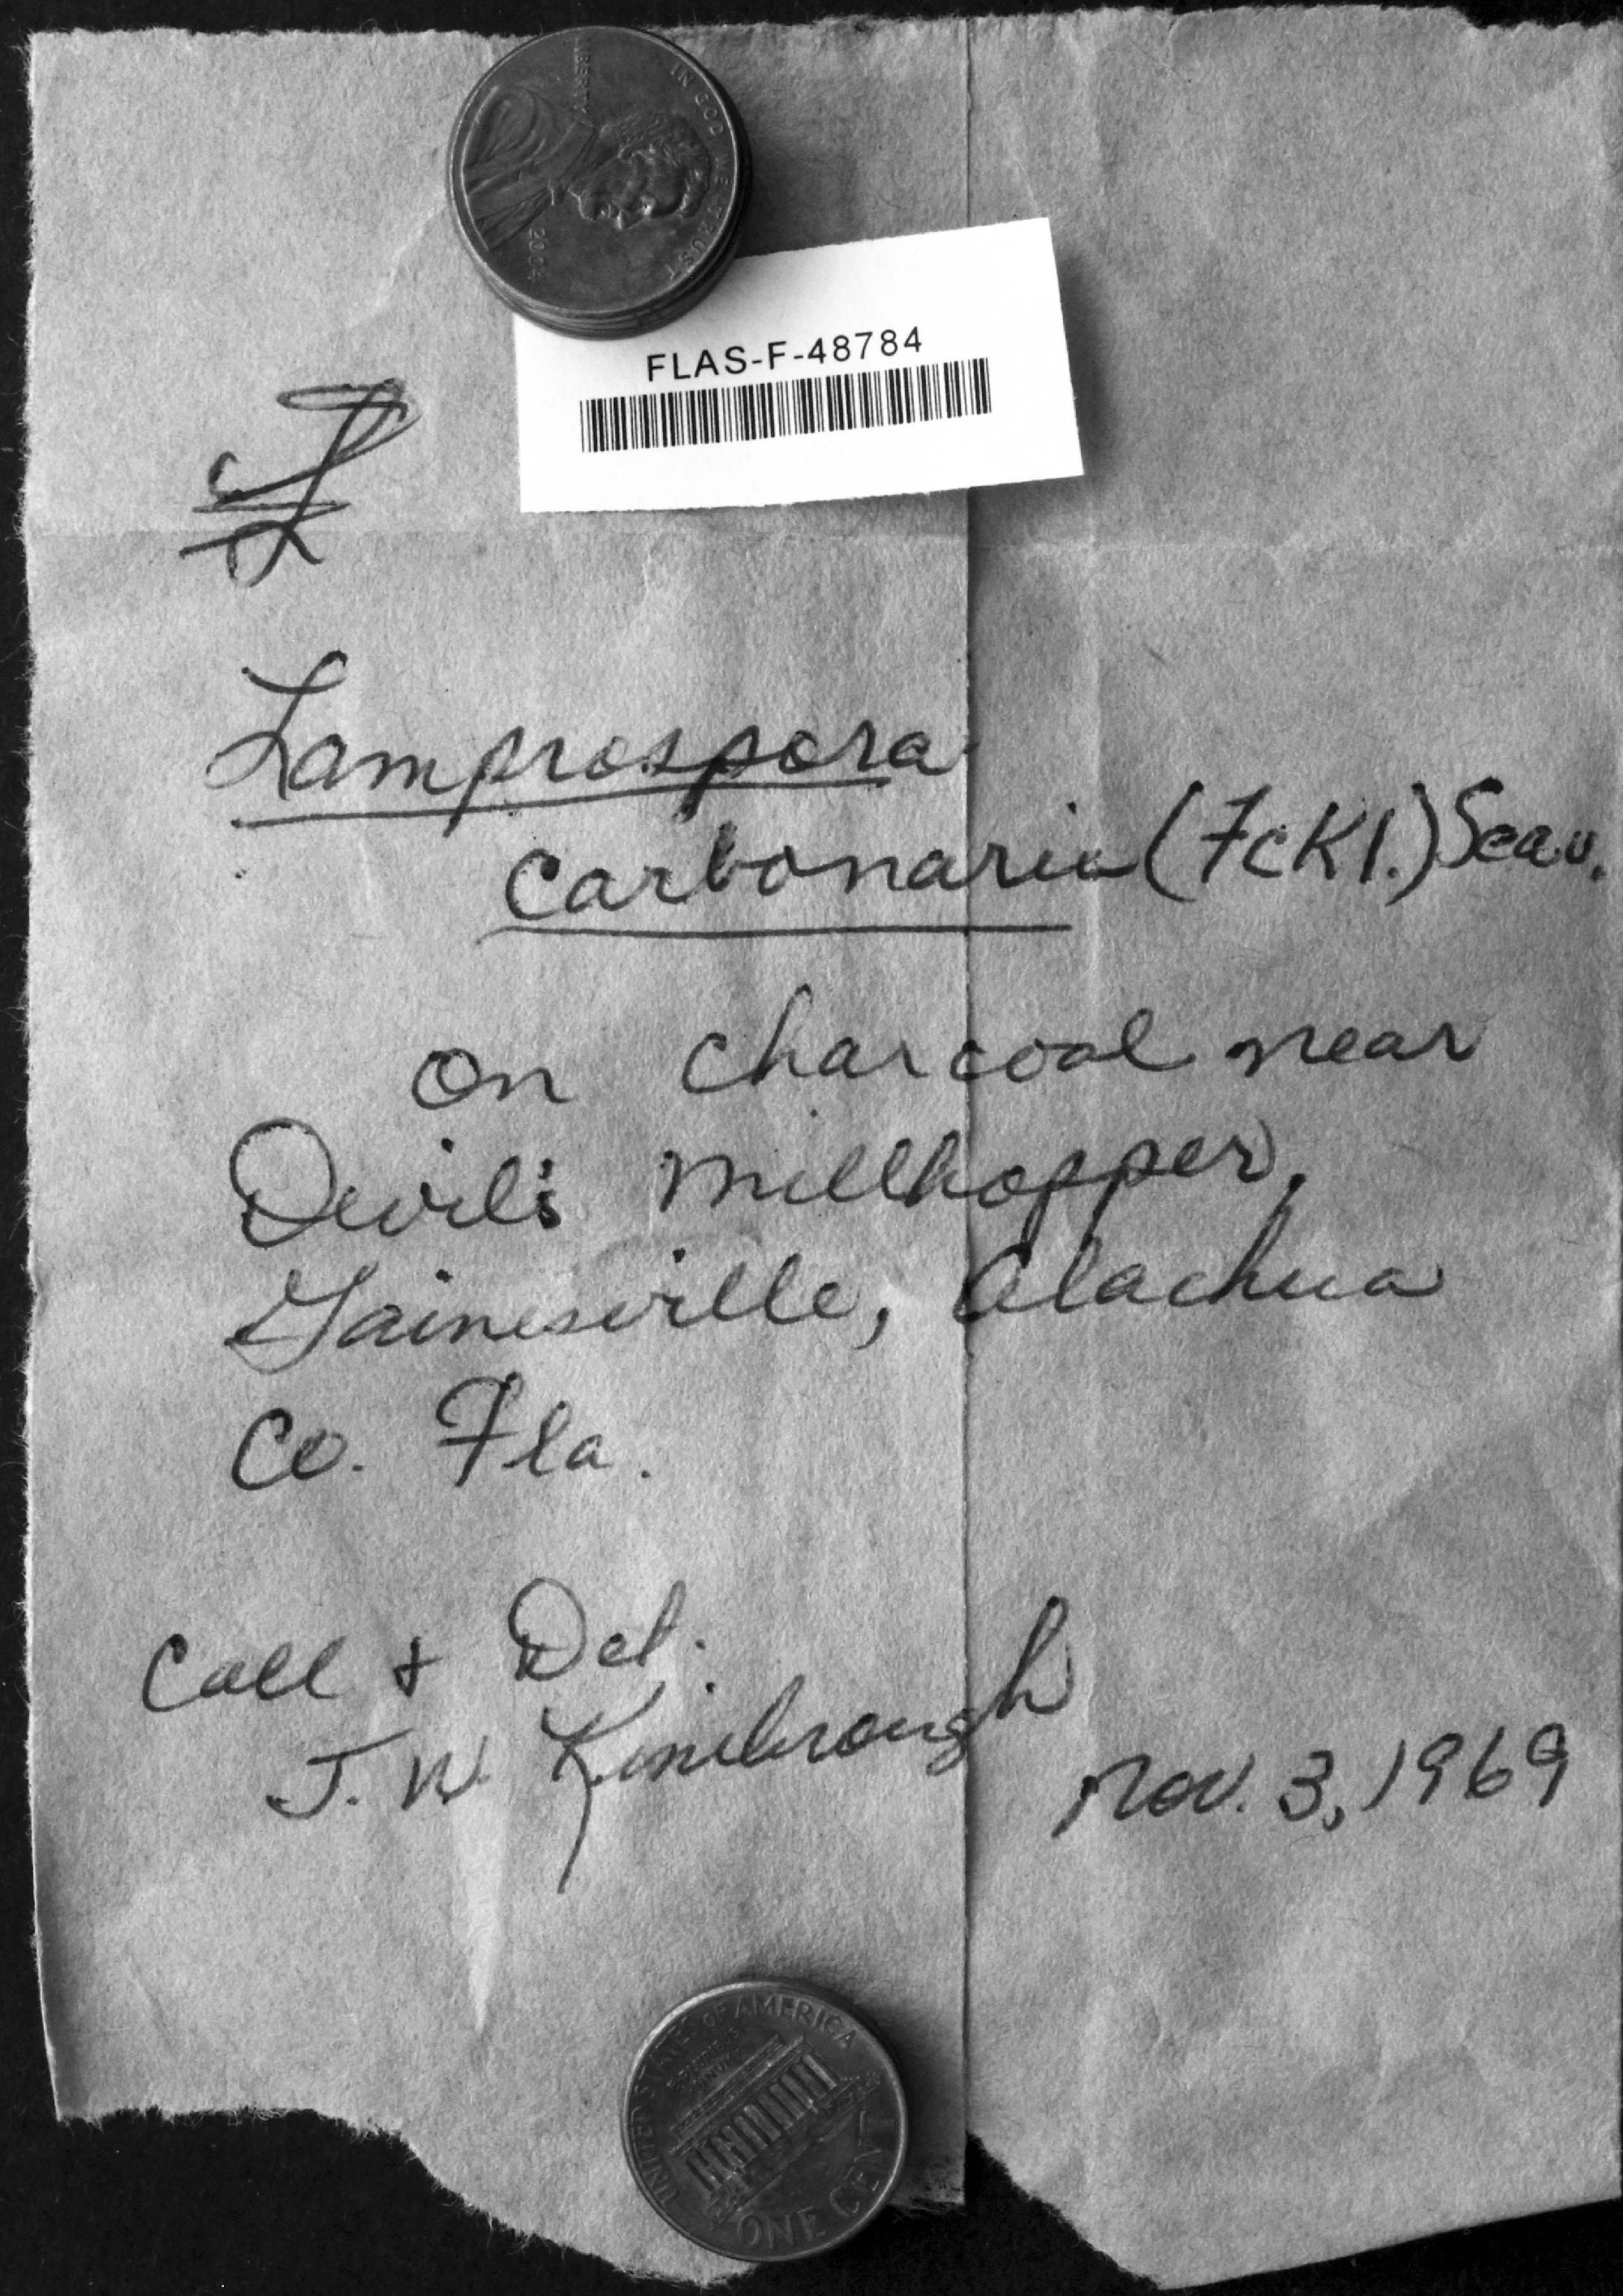 LIBERTY
IN GOD WE TRUST
FLAS-F-48784
Lamprospora
carbonaria (Fckl.) Seav.
On charcoal near
Devil's Millhopper,
Gainesville, Alachua
Co. Fla.
Coll & Det.
J. W. Kimbrough
Nov. 3, 1969
UNITED STATES OF AMERICA
E PLURIBUS UNUM
ONE CENT